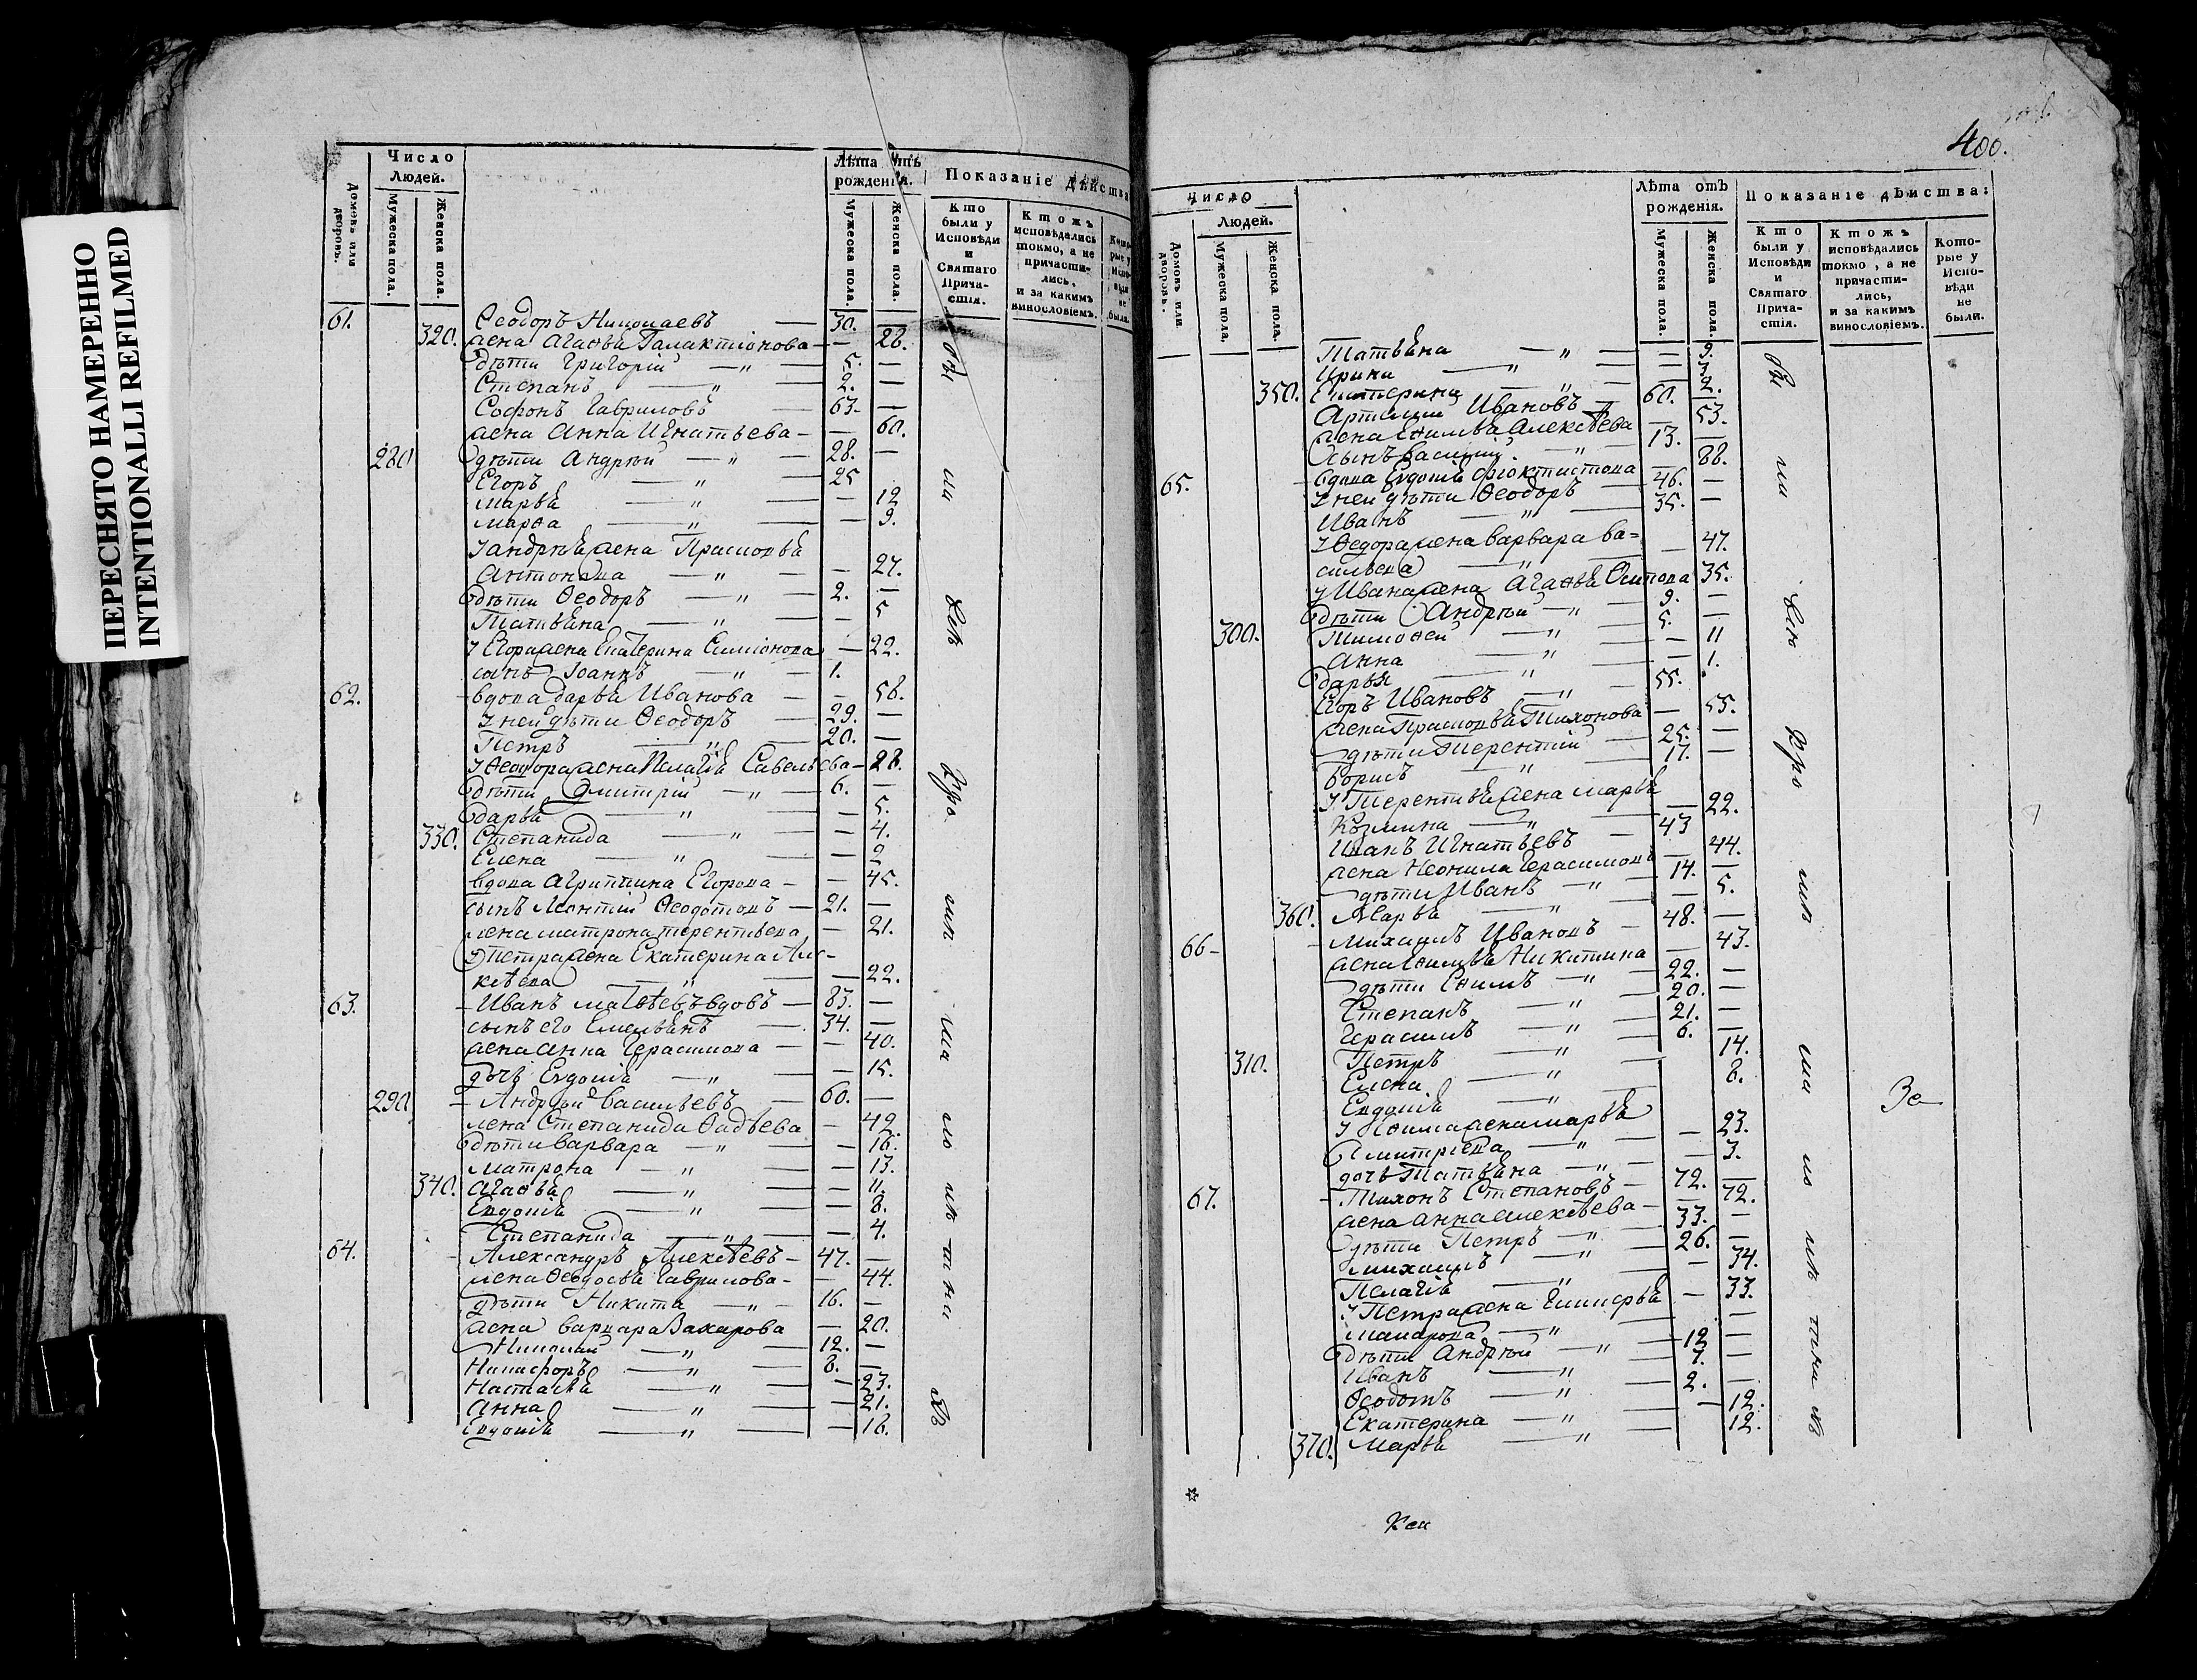 ПЕРЕСНЯТО НАМЕРЕННО
INTENTIONALLI REFILMED
Домовъ или дворовъ.
Число Людей.
Мужеска пола.
Женска пола.
Лѣта отъ рожденія.
Мужеска пола.
Женска пола.
Показаніе дѣйства
Кто были у Исповѣди и Святаго Причастія.
Ктожъ исповѣдались токмо, а не причастились, и за какимъ винословіемъ.
Которые у Исповѣди не были.
61. Ѳеодоръ Николаевъ 30. —
320. жена Агаѳья Галактіонова — 28.
дѣти Григорій — „ — 5. —
Степанъ — „ — 2. —
Софонъ Гавриловъ 63. —
жена Анна Игнатьева — 60.
280 дѣти Андрей — „ — 28. —
Егоръ — „ — 25
Марья — „ — 12
Марѳа — „ — 9.
у Андрея жена Прасковья
Антонова — „ — 27.
дѣти Ѳеодоръ — „ — 2. —
Татьяна — „ — 5
у Егора жена Екатерина Симіонова — 22.
сынъ Іоаннъ — „ — 1.
62. вдова Дарья Иванова — 58.
у ней дѣти Ѳеодоръ — 29. —
Петръ — „ — 20. —
у Ѳеодора жена Пелагія Савельева — 28.
дѣти Дмитрій — „ — 6. —
Дарья — „ — 5.
330. Степанида — „ — 4.
Елена — „ — 2
вдова Агриппина Егорова — 45.
сынъ Леонтій Ѳеодотовъ — 21. —
жена Матрона Терентьева — 21.
у Петра жена Екатерина Але-
ксѣева — „ — 22.
63. Иванъ Матѳѣевъ вдовъ — 83. —
сынъ его Емельянъ — 34. —
жена Анна Герасимова — 40.
дочь Евдокія — „ — 15.
290 Андрей Васильевъ — 60. —
жена Степанида Ѳадѣева — 42.
дѣти Варвара — „ — 16.
Матрона — „ — 13.
340. Агаѳья — „ — 11.
Евдокія — „ — 8.
Степанида — „ — 4.
64. Александръ Алексѣевъ — 47. —
жена Ѳеодосья Гаврилова — 44.
дѣти Никита — „ — 16. —
жена Варвара Захарова — 20.
Николай — „ — 12. —
Никифоръ — „ — 8. —
Настасья — „ — 23.
Анна — „ — 21.
Евдокія — „ — 18.
400.
Домовъ или дворовъ.
Число Людей.
Мужеска пола.
Женска пола.
Лѣта отъ рожденія.
Мужеска пола.
Женска пола.
Показаніе дѣйства:
Кто были у Исповѣди и Святаго Причастія.
Ктожъ исповѣдались токмо, а не причастились, и за какимъ винословіемъ.
Которые у Исповѣди не были.
Татьяна — „ — 9.
Ирина — „ — 3.
350. Екатерина — „ — 2.
Ивановъ 60. —
Алексѣева — 53.
сынъ Василій — „ — 13. —
65. вдова Евдокія — 88.
у ней дѣти Ѳеодоръ — 46. —
Иванъ — „ — 35. —
у Ѳедора жена Варвара Ва-
сильева — „ — 47.
у Ивана жена Агаѳья Осипова 35.
дѣти Андрей — „ — 9. —
300. Тимоѳей — „ — 5. —
Анна — „ — 11
Дарья — „ — 1.
Егоръ Ивановъ — „ — 55.
жена Прасковья Тихонова — 55.
дѣти Терентій — 25. —
Борисъ — „ — 17. —
у Терентья жена Марья
Козмина — „ — 22.
Иванъ Игнатьевъ — 43
жена Неонила Герасимова — 44.
дѣти Иванъ — „ — 14. —
360. Марья — „ — 5.
66 — Михаилъ Ивановъ — 48. —
жена Никитина — 43.
дѣти — „ — 22. —
Степанъ — „ — 20. —
Герасимъ — „ — 21. —
310. Петръ — „ — 6. —
Елена — „ — 14.
Евдокія — „ — 8.
жена Марья
Дмитріева — „ — 23.
дочь Татьяна — „ — 3.
67. Тихонъ Степановъ — 72. —
жена Анна Алексѣева — 72.
дѣти Петръ — „ — 33. —
Михаилъ — „ — 26. —
Пелагія — „ — 34.
у Петра жена Гликерья — 33.
Макарова — „ — —
дѣти Андрей — „ — 12 —
Иванъ — „ — 7. —
Ѳеодотъ — „ — 2. —
Екатерина — „ — 12.
370. Марья — „ — 12.